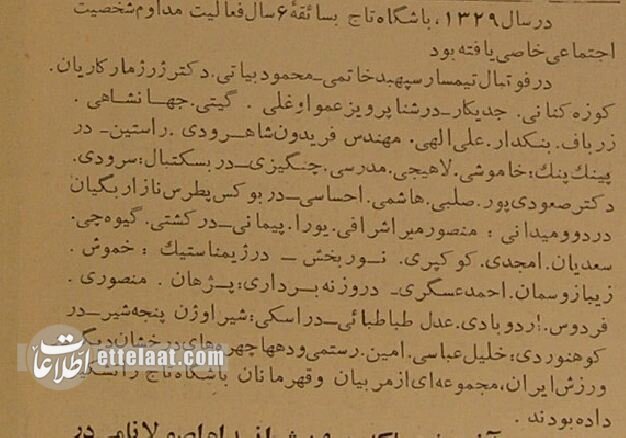 در سال ۱۳۲۹، باشگاه تاج بسائقهٔ ۶ سال فعالیت مداوم شخصیت
اجتماعی خاصی یافته بود
در فوتبال تیمسار سپهبد خاتمی ـ محمود بیاتی. دکتر ژرژ مارکاریان.
کوزه کنانی. جدیکار ـ در شنا پرویز عمو اوغلی. گیتی. جهانشاهی.
زرباف. بنکدار. علی الهی. مهندس فریدون شاهرودی. راستین ـ در
پینک پنک: خاموشی. لاهیجی. مدرسی. چنگیزی ـ در بسکتبال: سرودی.
دکتر صعودی پور. صلبی. هاشمی. احساسی ـ در بوکس پطرس نازاربگیان
در دو و میدانی: منصور میراشرافی. یورا. پیمانی ـ در کشتی. گیوه چی.
سعدیان. امجدی. کوکپری. نوربخش ـ در ژیمناستیک: خموش.
زیباز و سمان. احمد عسگری ـ در وزنه برداری: پژهان. منصوری.
فردوس. اردوبادی. عدل طباطبائی ـ در اسکی: شیراوژن پنجه شیر ـ در
کوهنوردی: خلیل عباسی. امین. رستمی و دهها چهره‌های درخشان دیگر
ورزش ایران، مجموعه‌ای از مربیان و قهرمانان باشگاه تاج را تشکیل
داده بودند.
اطلاعات ettelaat.com